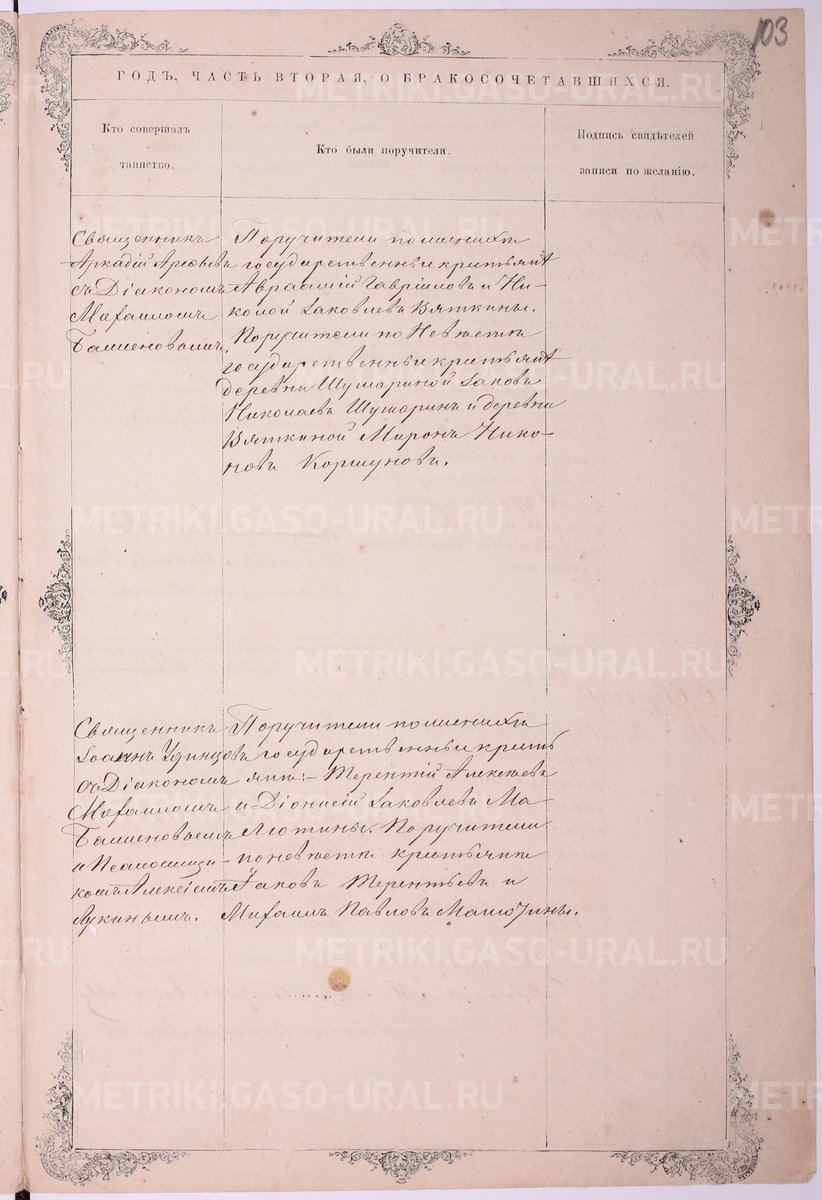 103
ГОДЪ, ЧАСТЬ ВТОРАЯ, О БРАКОСОЧЕТАВШИХСЯ.
Кто совершалъ
таинство.
Кто были поручители.
Подпись свидѣтелей
записи по желанію.
Священникъ
Аркадій
съ Діакономъ
Михаиломъ
Поручители по женихѣ
государственные крестьяне
Авраамій Гавріиловъ и Ни-
колай Іаковлевъ Вяткины.
Поручители по Невѣстѣ
государственные крестьяне
деревни Шушариной Іаковъ
Николаевъ Шушаринъ и деревни
Вяткиной Миронъ Нико-
новъ Коршуновъ.
Священникъ
Іоаннъ Удинцовъ
съ Діакономъ
Михаиломъ
и Псаломщи-
комъ Алексіемъ
Лукинымъ.
Поручители по женихѣ
государственные кресть
яне:- Терентій Алексѣевъ
и Діонисій Іаковлевъ Ма-
лютины. Поручители
по невѣстѣ крестьяне
Іаковъ Терентьевъ и
Михаилъ Павловъ Малютины.
METRIKI.GASO-URAL.RU